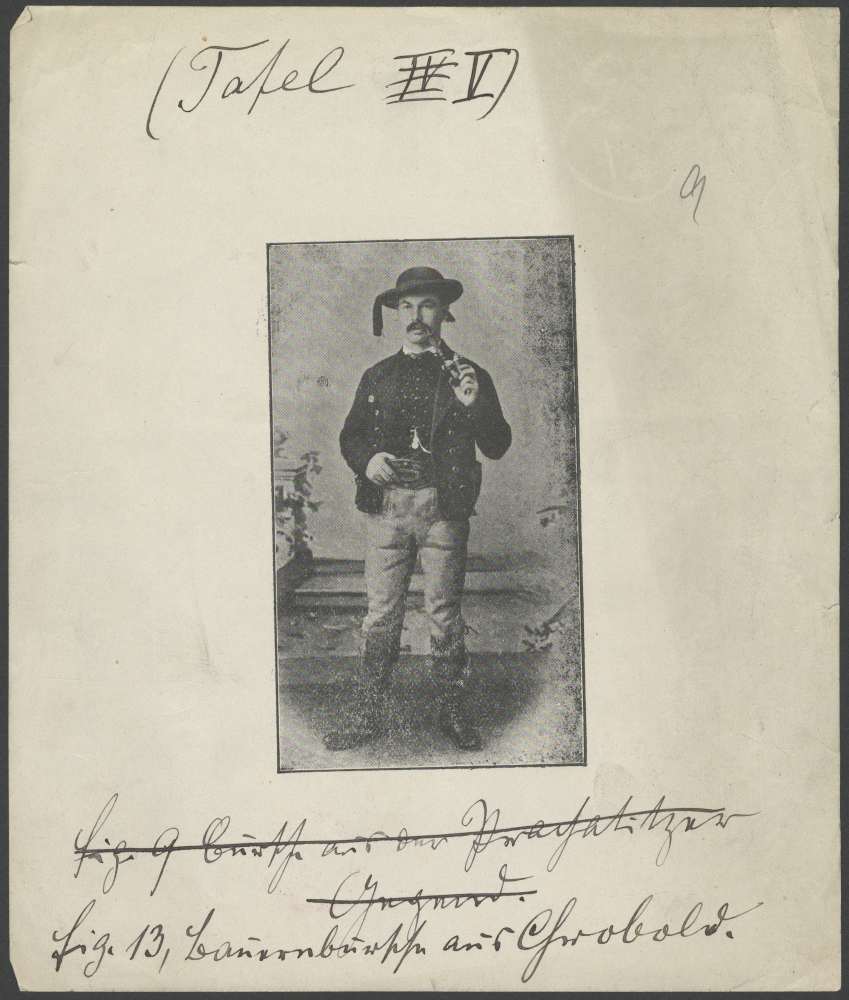 (Tafel IV V)
9
Fig. 9 Bursche aus der Prachatitzer
Gegend.
Fig. 13, Bauernbursche aus Chrobold.